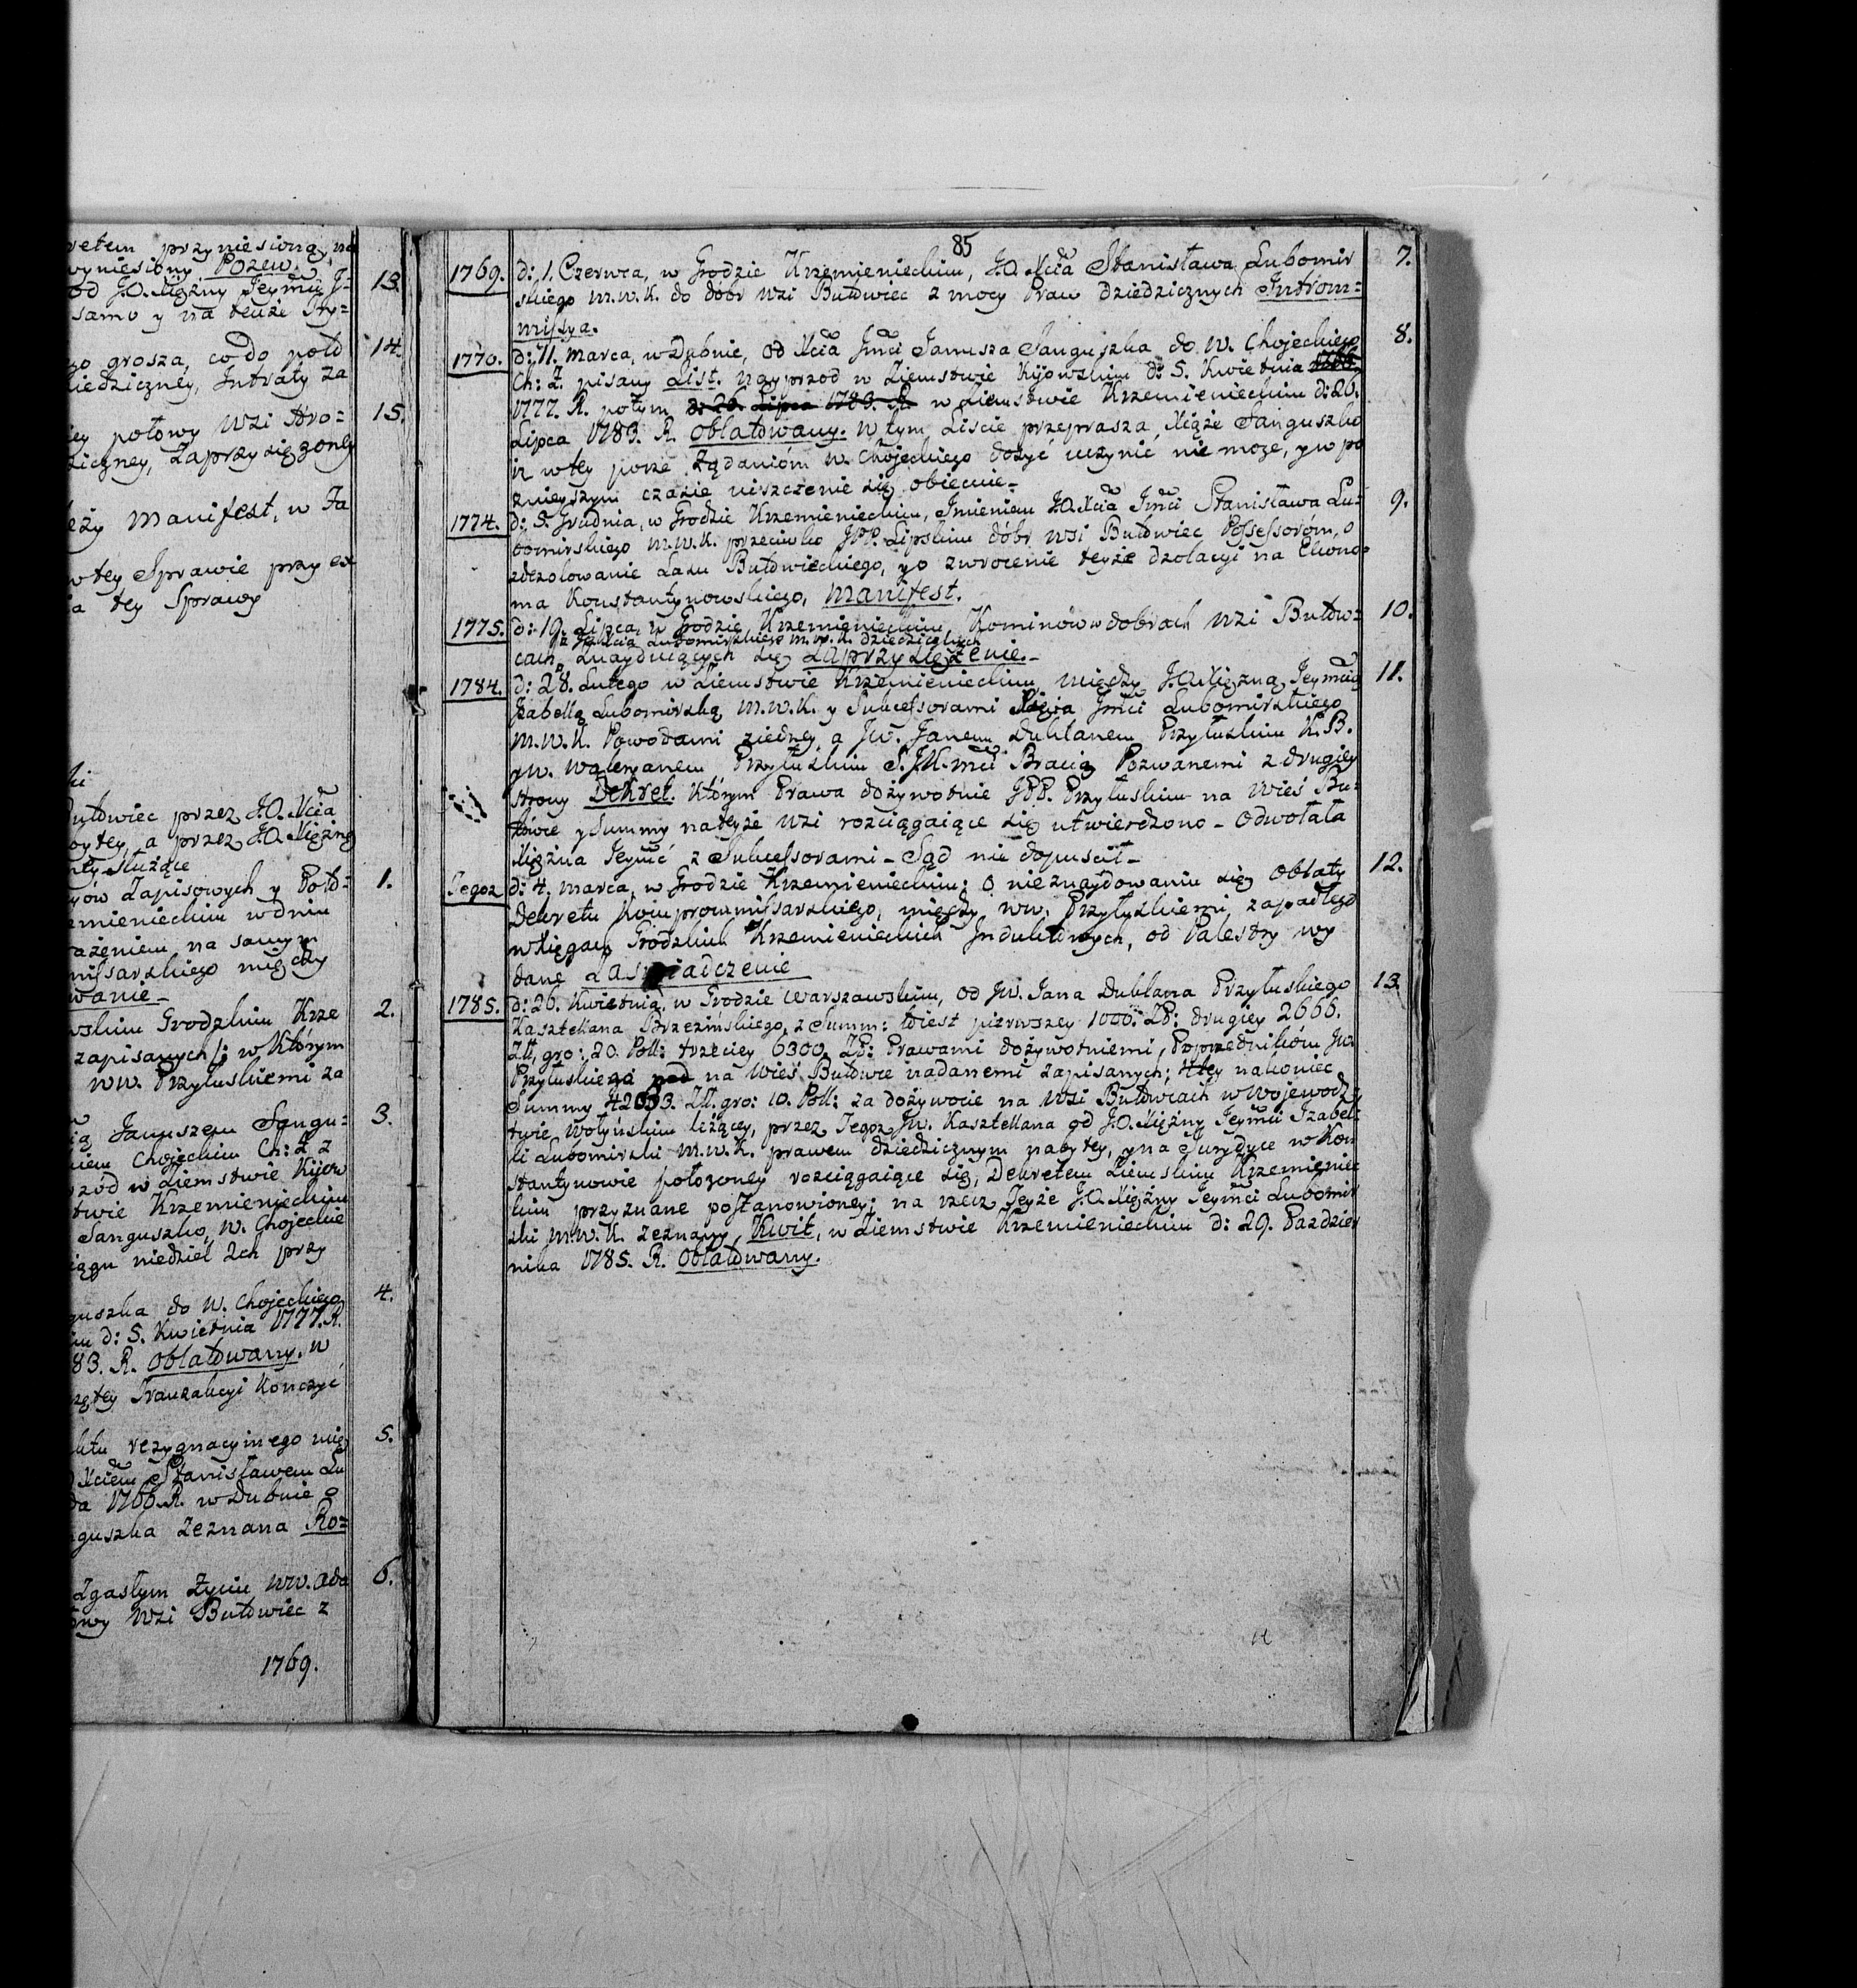 retem przyniesioną na
wyniesiony Pozew.
od J.O. Xiężny Jeymći J-
samo y na teyże Sty=
13.
go grosza, co do połd
dziedziczney, Intraty Za
14.
iey połowy Wzi Hro=
ziczney, Zaprzysiężoney
15.
leży Manifest, w Ja
w tey Sprawie przy ex
ia tey Sprawy
utdwiec przez J.O. Xcia
bytey, a przez J.O. Xiężną
służące
yów Zapisowych y Połd-
1.
emienieckim w dniu
rażeniem na samym
missarskiego między
wanie
wskim Grodzkim Krze
2.
zapisanych; w którym
WW. Przyłuskiemi za
ią Januszem Sangu=
3.
kiem Chojeckim Ch: Ż z
rzód w Ziemstwie Kijow
twie Krzemienieckim
Sanguszko, W. Chojeckie
iągu niedziel 2ch przy
guszka do W. Chojeckiego
4.
im d: 5. Kwietnia 1777. R.
83. R. Oblatowany. w
tey Tranzakcyi kończyć
ktu rezygnacyinego mię
5.
Xciem Stanisławem Lu
da 1766. R. w Dubnie o
guszka Zeznana Ro=
Zgasłym Życiu WW. Ada
6.
owy Wzi Butdwiec z
1769.
85
1769. d: 1. Czerwca, w Grodzie Krzemienieckim, J.O. Xcia Stanisława Lubomir 7.
skiego M.W.K. do dóbr Wzi Butdwiec z mocy Praw dziedzicznych Introm=
missya.
1770. d: 11. Marca, w Dubnie, od Xcia Jmći Janusza Sanguszka do W. Chojeckiego 8.
Ch: Ż. pisany List. nayprzod w Ziemstwie Kijowskim d: 5. Kwietnia
1777. R. potym d: 26. Lipca 1783. R. w Ziemstwie Krzemienieckim d: 26.
Lipca 1783. R. Oblatowany. W tym Liście przeprasza Xiąże Sanguszko
iż w tey porze Żądaniom W. Chojeckiego dosyć uczynić nie moze, y w po
znieyszym czasie uiszczenie się obiecuie-
1774. d: 5. Grudnia, w Grodzie Krzemienieckim, Imieniem J.O. Xcia Jmći Stanisława Lu= 9.
bomirskiego M.W.K. przeciwko JPP. Lipskim dóbr wsi Butdwiec Possessoróm, o
zdezolowanie Lasu Butdwieckiego, y o zwrocenie teyże dzolacyi na Ekono=
ma Konstantynowskiego, Manifest.
1775. d: 19. Lipca w Grodzie Krzemienieckim, Kominów w dobrach Wzi Butdw= 10.
J.O. Xcia Lubomirskiego M.W.K. dziedzicznych
cach, Znayduiących się Zaprzysiężenie.-
1784. d: 28. Lutego w Ziemstwie Krzemienieckim, między J.O. Xiężną Jeymćią 11.
Izabellą Lubomirską M.W.K. y Sukcessorami Xięcia Jmći Lubomirskiego
M.W.K. Powodami z iedney, a JW. Janem Dukłanem Przyłuskim K.B.
y W. Waleryanem Przyłuskim S.J.K.mći Bracią Pozwanemi z drugiey
Strony Dekret. Którym Prawa dożywotnie JPP. Przyłuskim na Wieś Bu=
tdwce y Summy na teyże Wzi rozciągaiące się utwierdzono - Odwołała
Xiężna Jeymć z Sukcessorami - Sąd nie dopuscił-
Tegoż d: 4. Marca, w Grodzie Krzemienieckim: O nieznaydowaniu się Oblaty 12.
Dekretu Kompromissarskiego, między WW. Przyłuskiemi zapadłego
w Xięgach Grodzkich Krzemienieckich Induktowych, od Palestry wy
dane Zaswiadczenie
1785. d: 26. Kwietnia. w Grodzie Warszawskim, od JW. Jana Dukłana Przyłuskiego 13.
Kasztelana Brzezińskiego, z Summ: to iest pierwszey 1000. ZP: drugiey 2666.
Zł. gro: 20. Poll: trzeciey 6300. ZP: Prawami dożywotniemi, Poprzedników JW.
Przyłuskiego na Wieś Butdwce nadanemi zapisanych; Xtey nakoniec
Summy 42033. Zł. gro: 10. Poll: za dożywocie na Wsi Butdwcach w Wojewodz
twie Wołyńskim leżącey, przez Tegoż JW. Kasztelana od J.O. Xiężny Jeymći Izabel-
li Lubomirski M.W.K. prawem dziedzicznym nabytey, y na Jurydyce w Kon
stantynowie położoney rozciągaiące się, Dekretem Ziemskim Krzemieniec
kim przyznane postanowioney; na rzecz Teyże J.O. Xiężny Jeymći Lubomir
ski M.W.K. zeznany, Kwit, w Ziemstwie Krzemienieckim d: 29. Pazdzier
nika 1785. R. Oblatowany.